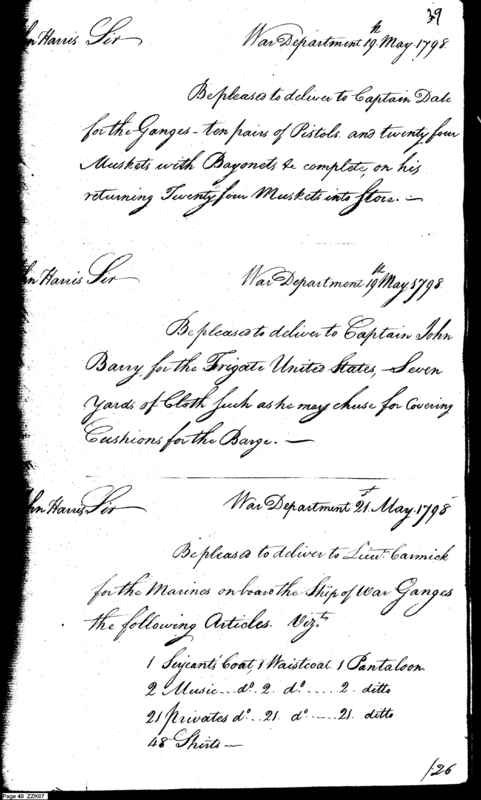 39
hn Harris Sir War Department 19th May 1798
Be pleased to deliver to Captain Dale
for the Ganges - ten pairs of Pistols. and twenty four
Muskets with Bayonets &c complete, on his
returning Twenty four Muskets into Store. —
hn Harris Sir War Department 19th May 1798
Be pleased to deliver to Captain John
Barry, for the Frigate United States, Seven
Yards of Cloth such as he may chuse for Covering
Cushions for the Barge. —
hn Harris Sir War Department 21st May 1798
Be pleased to deliver to Lieut. Carmick
for the Marines on board the Ship of War Ganges
the following Articles. Vizt.
1 Serjeants Coat, 1 Waistcoat 1 Pantaloon.
2 Music do. 2. do. 2. ditto
21 Privates do. 21. do. 21. ditto
48 Shirts —
126
Page 40 ZZK07